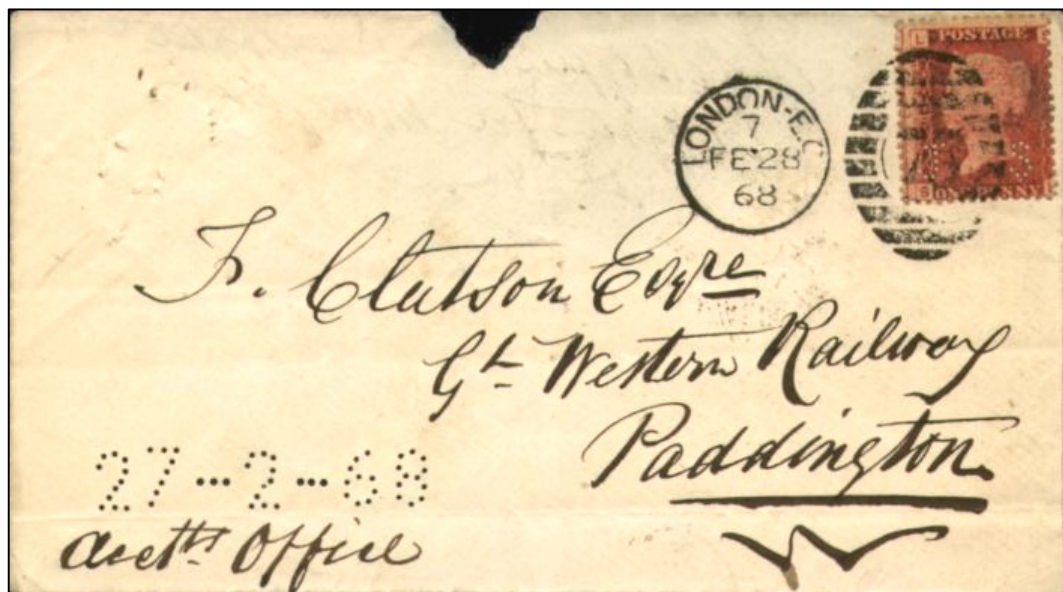 POSTAGE
LONDON-E.C
7
FE 28
68
ONE PENNY
F. Clutson Esqre
Gt Western Railway
Paddington
27-2-68
Acctts Office